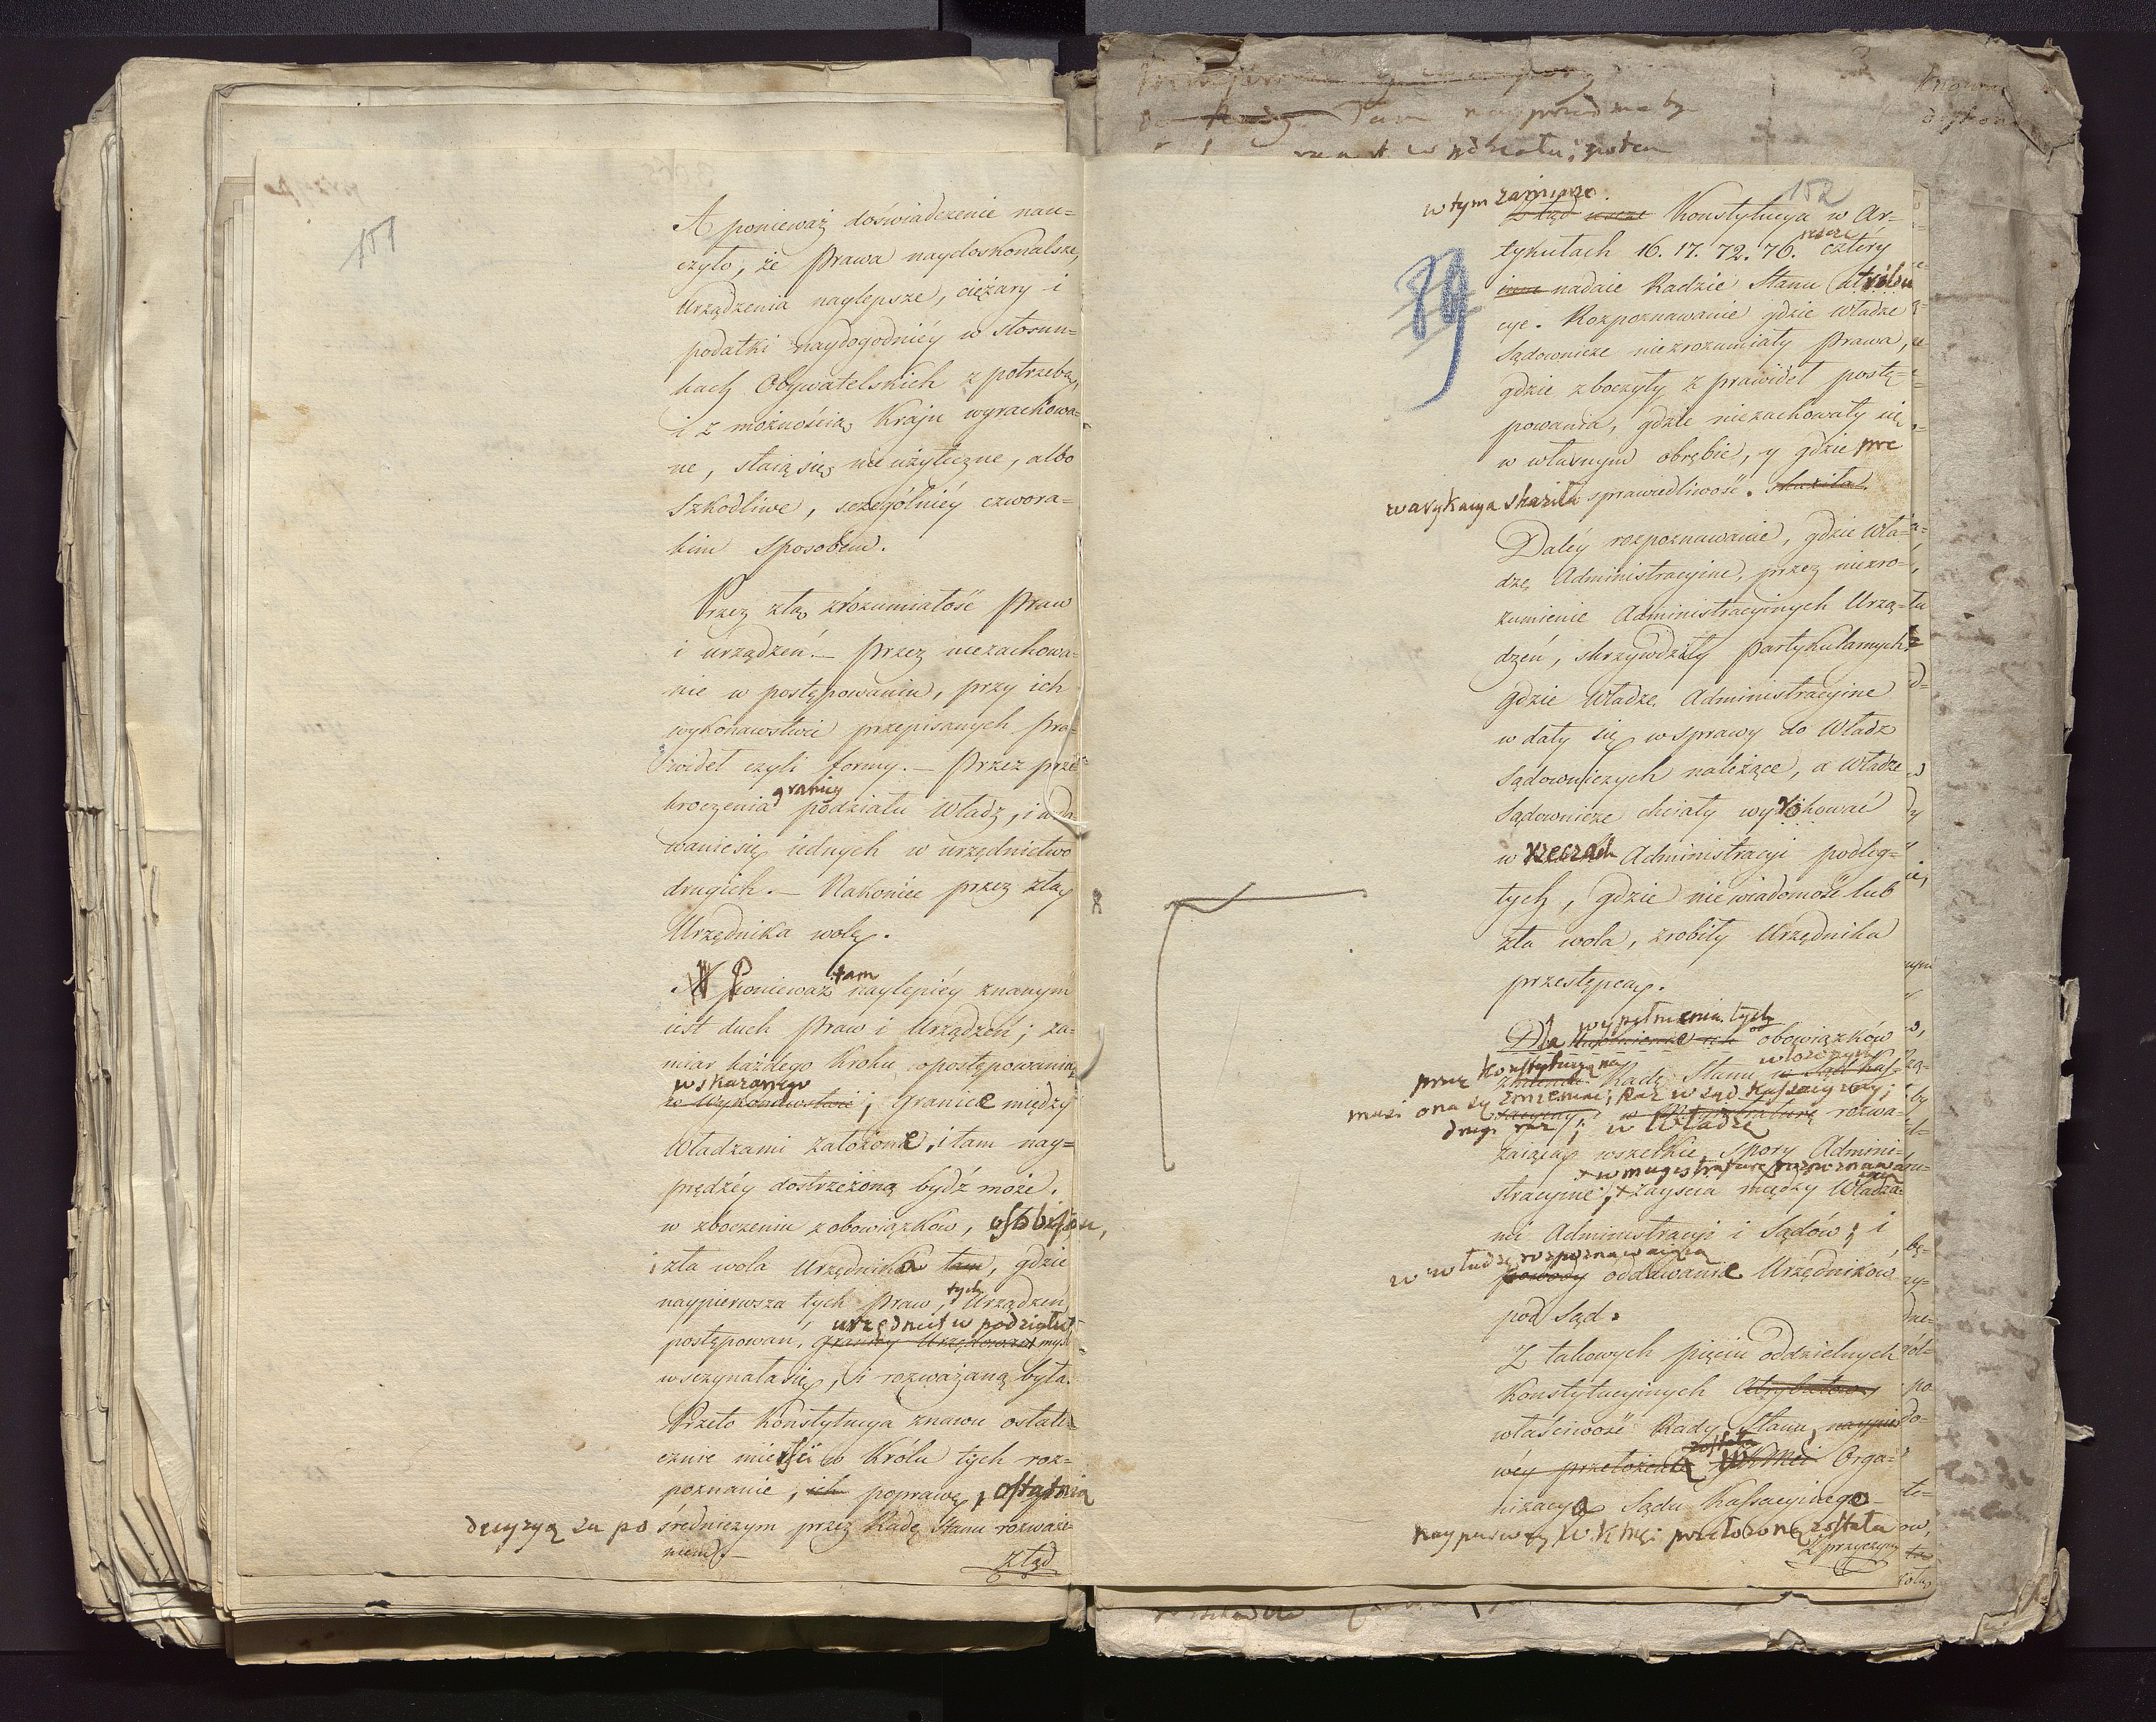 151
A ponieważ doświadczenie nau=
czyło, że Prawa naydoskonalsze,
Urządzenia naylepsze, ciężary i
podatki naydogodniéy w stosun=
kach Obywatelskich z potrzebą,
i z możnością Kraju wyrachowa=
ne, staią się nie użyteczne, albo
szkodliwe, szczególniéy czwora=
kim sposobem.
Przez złą zrozumiałość Praw
i urządzeń. — Przez niezachowa=
nie w postępowaniu, przy ich
wykonawstwie przepisanych pra=
wideł czyli formy. — Przez prze=
granicy
kroczenia podziału Władz, i wda
wanie się iednych w urzędnictwo
drugich. — Nakoniec przez złą
Urzędnika wolę.
tam
A Ponieważ naylepiéy znanym
iest duch Praw i Urządzeń; za=
miar każdego Kroku postępowania
wskazanego
w Wykonawstwie; granice między
Władzami założone, i tam nay=
prędzéy dostrzeżoną bydź może.
w zboczeniu z obowiązków,
i zła wola Urzędnika tam, gdzie
tych
naypierwsza tych Praw, Urządzeń
urzędnictw podziału
postępowań, granicy Urzędowań myśl
wszczynała się, i rozważaną była.
Przeto Konstytucya znowu ostate=
cznie mieści w Królu tych roz=
poznanie, ich poprawę, ostatnią
decyzyą za po średniczym przez Radę Stanu rozważe=
niem. —
Ztąd
152
w tym zamiarze
Ztąd Konstytucya w Ar=
tykułach 16. 17. 72. 76. cztéry
inne nadaie Radzie Stanu Atrybu
cye. Rozpoznawanie gdzie Władze
Sądownicze niezrozumiały Prawa,
gdzie zboczyły z prawideł postę=
powania, gdzie niezachowały się
w własnym obrębie, y gdzie pre
warykacya skaziła sprawiedliwość. skaziła.
89
Daléy rozpoznawanie, gdzie Wła=
dze Administracyine, przez niezro=
zumienie Administracyinych Urzą=
dzeń, skrzywdziły Partykularnych
gdzie Władze Administracyine
wdały się w sprawy do Władz
Sądowniczych należące, a Władze
Sądownicze chciały wyrokować
w rzeczach Administracyi podleg=
łych, gdzie niewiadomość lub
zła wola, zrobiły Urzędnika
przestępcą.
wypełnienia tych
Dla obowiązków
przez Konstytucyą na włożonych
Radę Stanu w Sąd Kas=
musi ona się zmieniać; raz w sąd Kassacyiny;
sacyiny; w Magistraturę rozwa=
drugi raz; w Władzę
żaiącą wszelkie Spory Admini=
+ w magistraturę rozpoznawa
iącą
stracyine; + zayścia między Władza=
mi Administracyi i Sądów; i
w władzę rozpoznawaiącą
powody oddawania Urzędników
pod Sąd.
Z takowych pięciu oddzielnych
Konstytucyinych Atrybutów
właściwość Rady Stanu, naypier
została
wéy przełożenia Orga=
nizacya Sądu Kassacyinego
naypierwéy W. K. Mci przełożoną została
Z przyczyny